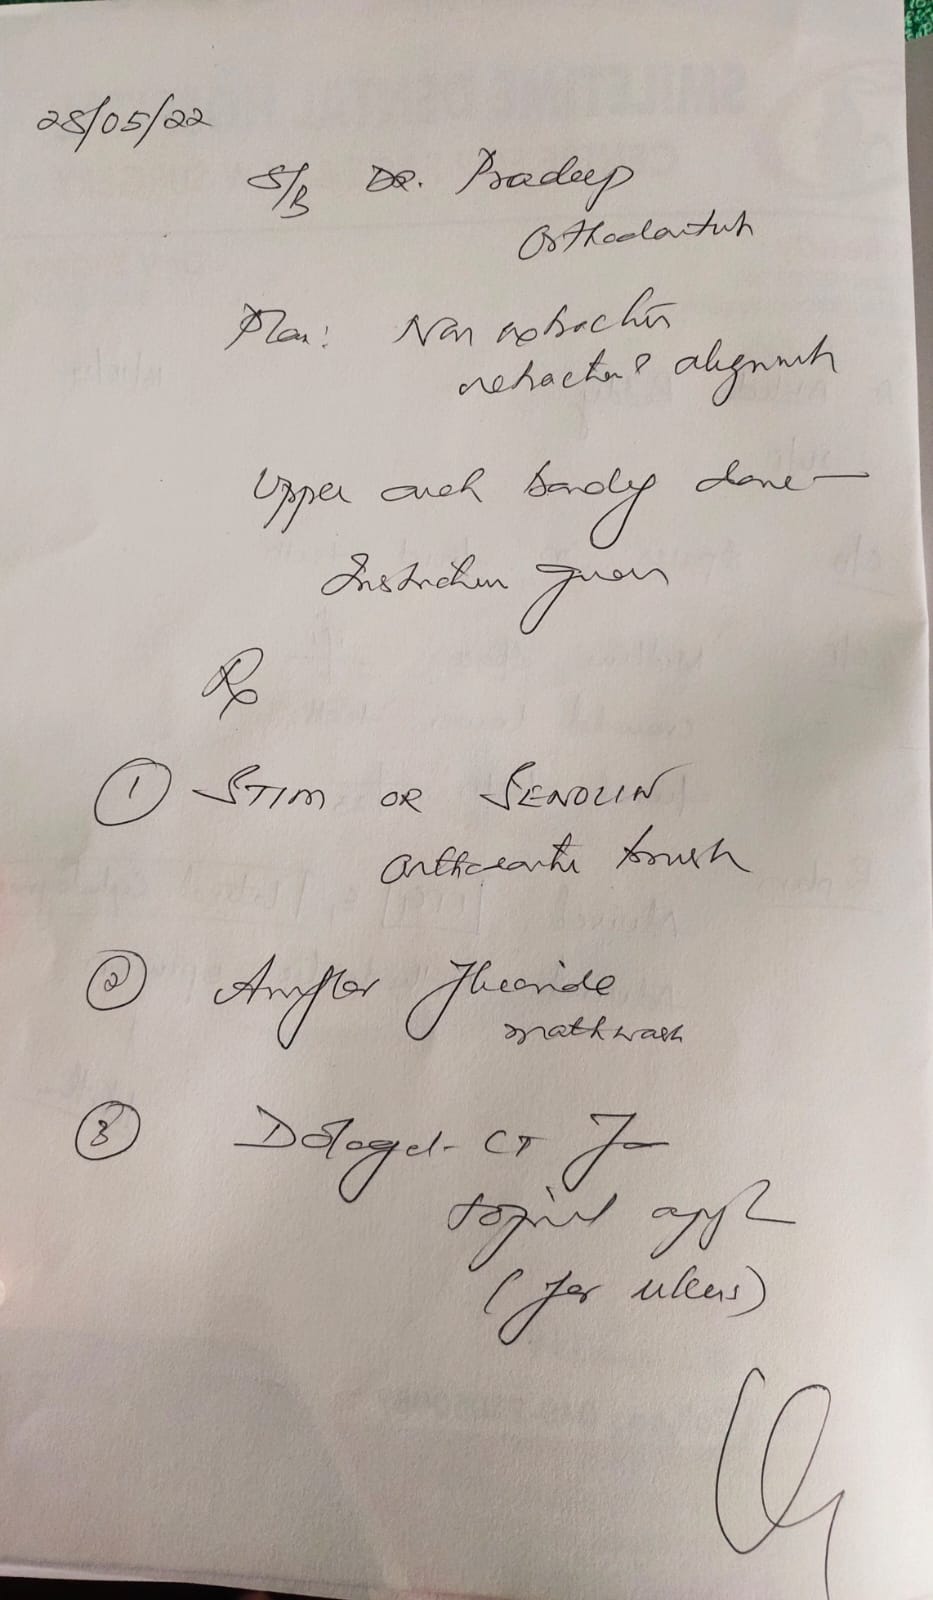 28/05/22
S/B Dr. Pradeep
Orthodontist
Plan: Non extraction
retraction & alignment
Upper arch bonding done
Instruction given
Rx
① STIM OR SENOLIN
orthodontic brush
② Amflor Fluoride
mathwash
③ Dologel-CT for
topical appl
(for ulcers)